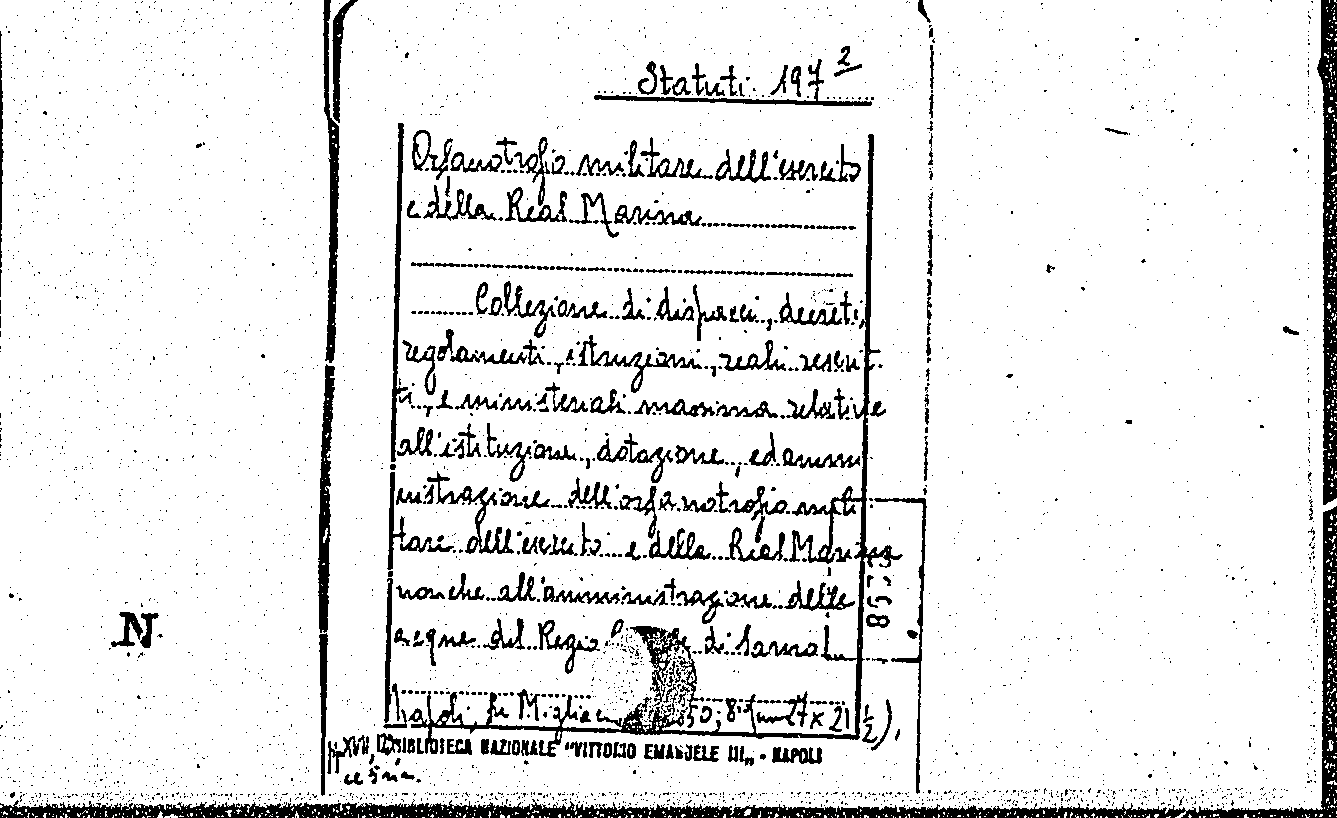 Statuti 197²
Orfanotrofio militare dell'esercito
e della Real Marina
Collezione di dispacci, decreti,
regolamenti, istruzioni, reali rescrit-
ti, e ministeriali massima relative
all'istituzione, dotazione, ed ammi
nistrazione dell'orfanotrofio mili
tare dell'esercito e della Real Marina
nonche all'amministrazione delle
acque del Regio di Sarno
Napoli,
N
BIBLIOTECA NAZIONALE "VITTORIO EMANUELE III„ - NAPOLI